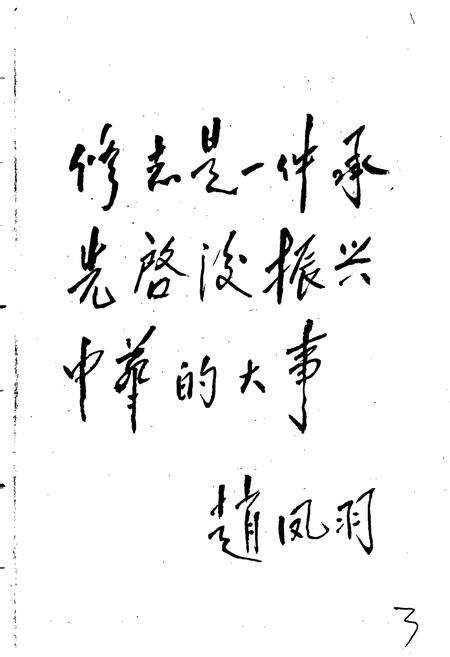 修志是一件承
先啓後振兴
中華的大事
趙凤羽
3